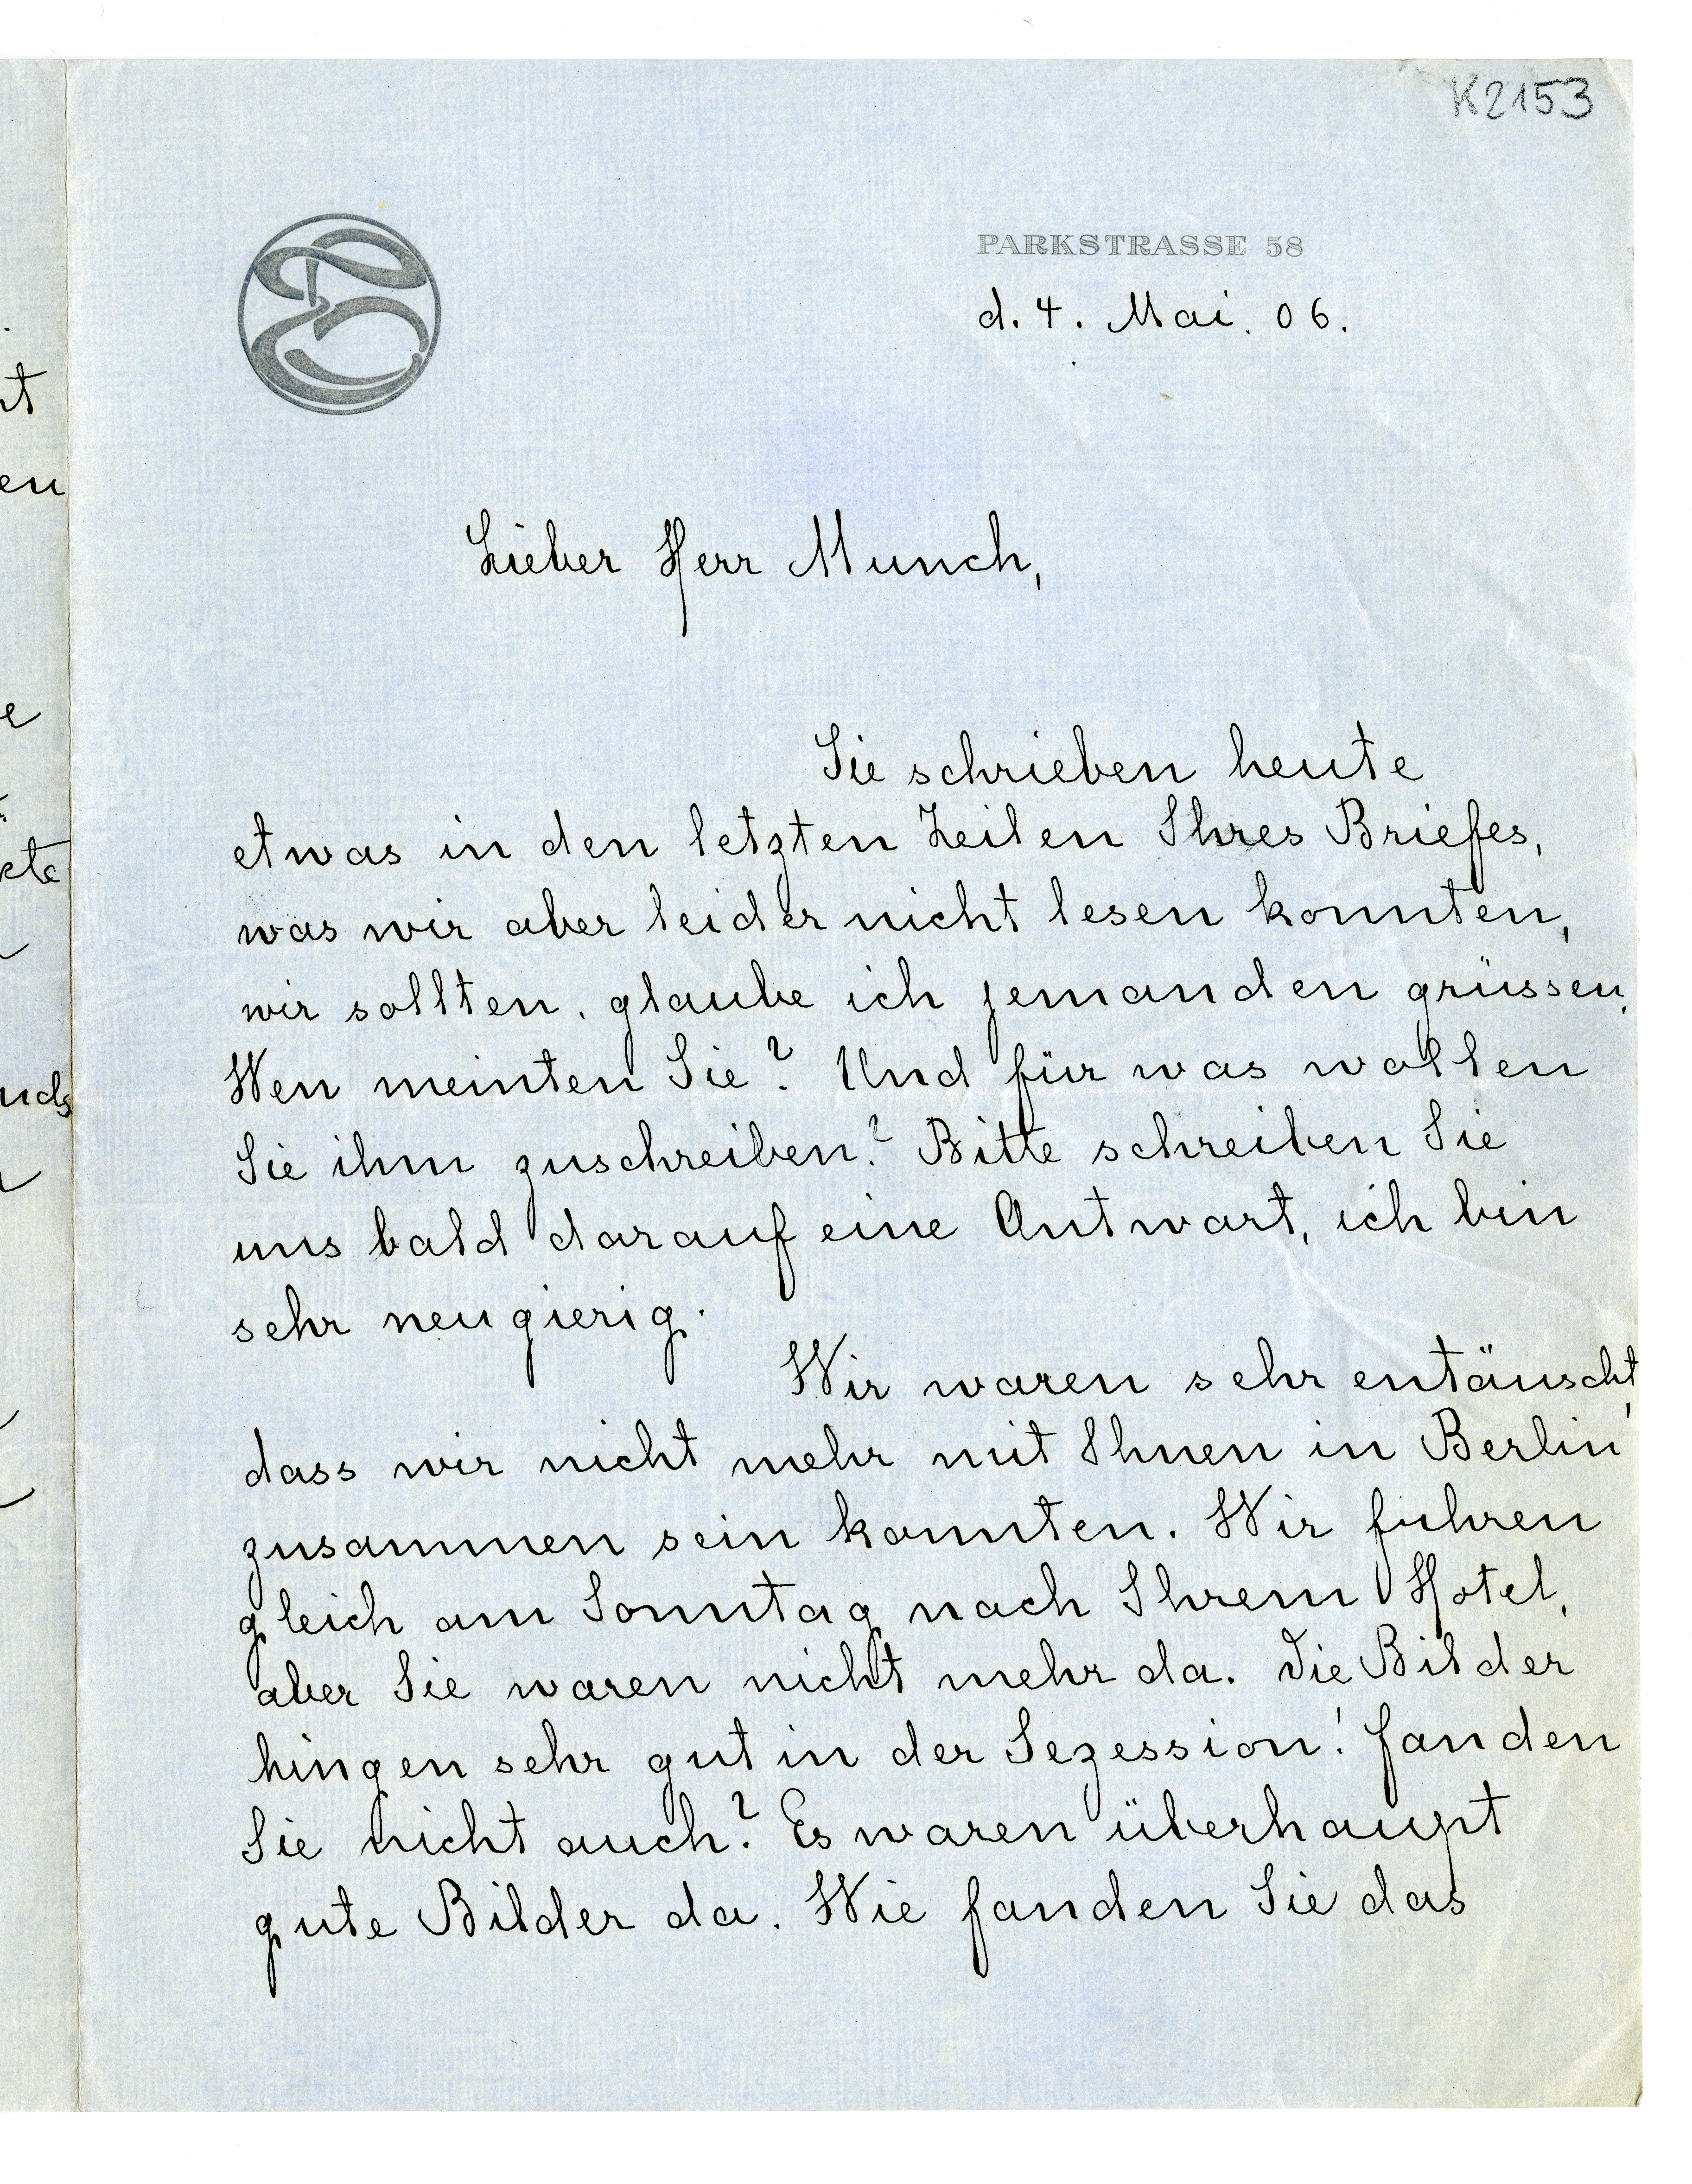 K2153
PARKSTRASSE 58
d. 4. Mai. 06.
Lieber Herr Munch,
Sie schrieben heute
etwas in den letzten Zeilen Ihres Briefes,
was wir aber leider nicht lesen konnten,
wir sollten, glaube ich jemanden grüssen.
Wen meinten Sie? Und für was wollen
Sie ihm zuschreiben? Bitte schreiben Sie
uns bald darauf eine Antwort, ich bin
sehr neugierig.
Wir waren sehr entäuscht,
dass wir nicht mehr mit Ihnen in Berlin
zusammen sein konnten. Wir fuhren
gleich am Sonntag nach Ihrem Hotel,
aber Sie waren nicht mehr da. Die Bilder
hingen sehr gut in der Sezession! Fanden
Sie nicht auch? Es waren überhaupt
gute Bilder da. Wie fanden Sie das